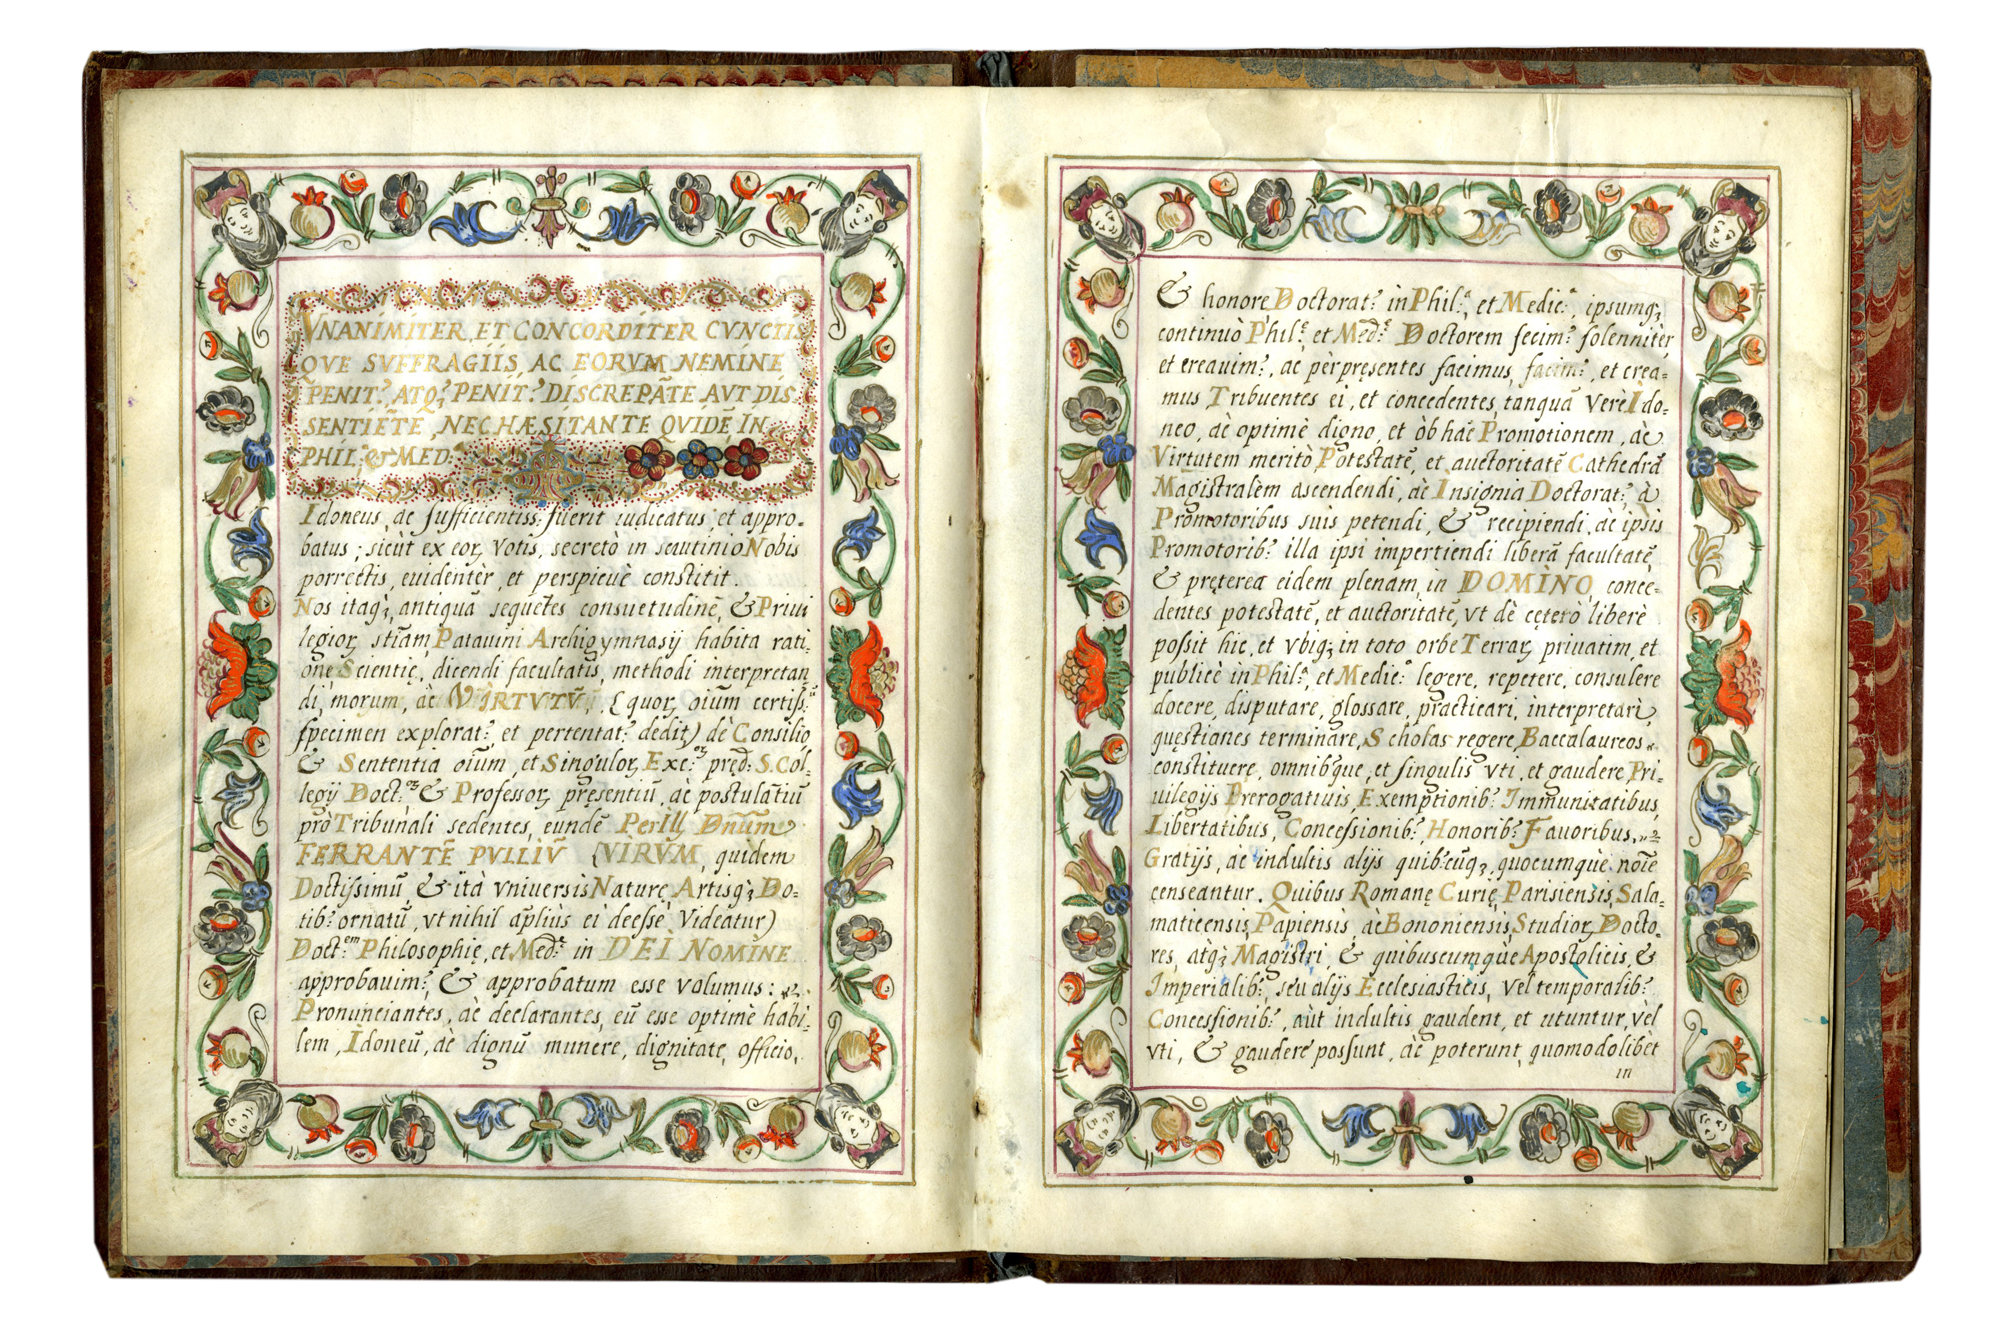 VNANIMITER, ET CONCORDITER CVNCTIS
QVE SVFFRAGIIS, AC EORVM NEMINE
PENIT.' ATQ; PENIT.' DISCREPÃTE AVT DIS:
SENTIẼTE, NEC HÆSITANTE QVIDẼ IN
PHIL. & MED.
Idoneus, ac sufficientiss: fuerit iudicatus, et appro-
batus; sicùt ex eoꝝ Votis, secretò in scutinio Nobis
porrectis, euidentèr, et perspicuè constitit.
Nos itaq;, antiquã sequẽtes consuetudinẽ, & Priui
legioꝝ istiusm̃ Patauini Archigymnasij habita rati-
one Scientię, dicendi facultatis, methodi interpretan
di, morum, ac VIRTVTŨ, (quoꝝ oĩum certiss:
specimen explorat: et pertentat: dedit) de Consilio
& Sententia oĩum, et Singuloꝝ Exc: pręd: S. Col-
legij Doct: & Professoꝝ pręsentiũ, ac postulãtiũ
prò Tribunali sedentes, eundẽ Perill. Dnũm
FERRANTẼ PVLLIŨ (VIRVM, quidem
Doctissimũ, & ità vniuersis Naturę, Artisq; Do-
tib: ornatũ, vt nihil ap̃liùs ei deesse Videatur)
Doct.em Philosophię, et Med.e in DEI NOMINE
approbauim:, & approbatum esse volumus:
Pronunciantes, ac declarantes, eũ esse optimè habi-
lem, Idoneũ, ac dignũ munere, dignitate, officio,
& honore Doctorat: in Phil:, et Medic:, ipsumq;
continuò Phil:e et Med:e Doctorem fecim: solenniter,
et creauim:, ac pèr pręsentes facimus, facim:, et crea-
mus Tribuentes ei, et concedentes, tanquã Vere Ido-
neo, ac optimè digno, et òb hãc Promotionem, ac
Virtutem meritò Potestatẽ, et auctoritatẽ Cathedrã
Magistralẽm ascendendi, ac Insignia Doctorat: à
Promotoribus suis petendi, & recipiendi, ac ipsis
Promotorib: illa ipsi impertiendi liberã facultatẽ,
& pręterea eidem plenam, in DOMINO, conce-
dentes potestatẽ, et auctoritatẽ, vt dè cęterò liberè
possit hic, et vbiq; in toto orbe Terraꝝ priuatim, et
publicè in Phil:, et Medic: legere, repetere, consulere
docere, disputare, glossare, practicari, interpretari,
quęstiones terminare, Scholas regere, Baccalaureos
constituere, omnibq́ue, et singulis vti, et gaudere Pri-
uilegijs Prerogatiuis, Exemptionib: Immunitatibus,
Libertatibus, Concessionib: Honorib: Fauoribus,
Gratijs, ac indultis alijs quibcũq; quocumquè noĩe
censeantur. Quibus Romanę Curię, Parisiensis, Sala-
maticensis, Papiensis, ac Bononiensis Studioꝝ Docto-
res, atq; Magistri, & quibuscumquè Apostolicis, &
Imperialib:, seu alijs Ecclesiasticis, vel temporalib:
Concessionib:, aùt indultis gaudent, et utuntur, vèl
vti, & gaudere possunt, ac poterunt, quomodolibet
in